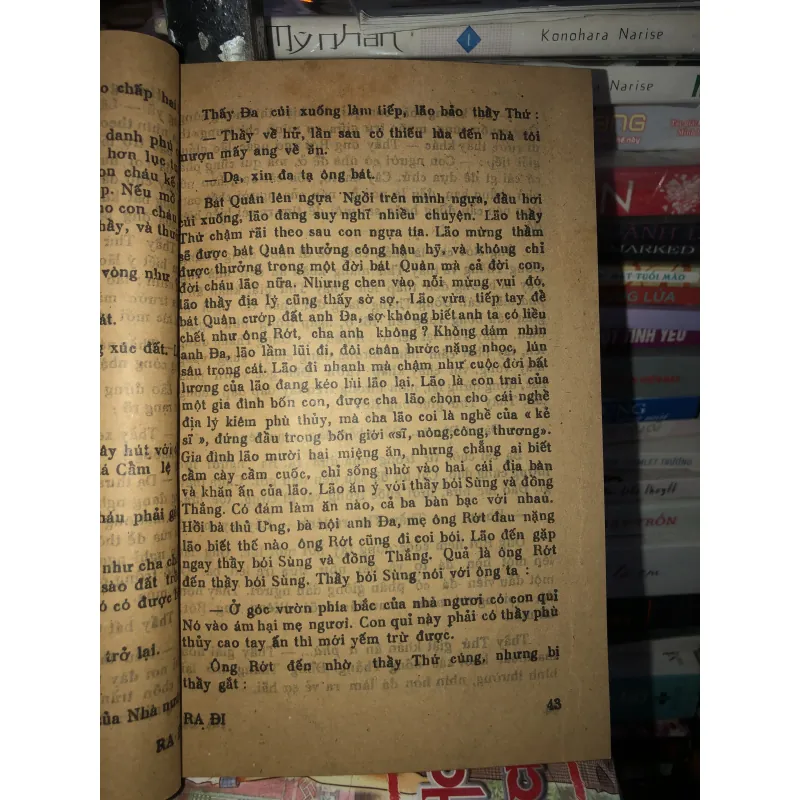 Mỹ nhân
1
Konohara Narise
Narise
MARKED
TUỔI MÃO
LỬA
TÌNH YÊU
o chấp hai
danh phú
hơn lục
on cháu kế
p. Nếu mồ
ho con cháu
hầy, và
vòng như
át.
g xúc đất.
ây hút với
á Cẩm lệ
háu phải
như cha
sào đất
ó có được
trở lại.
của Nhà
RA
Thấy Đa cúi xuống làm tiếp, lão bảo thầy Thứ :
— Thầy về hử, lần sau có thiếu lúa đến nhà tôi
mượn mấy ang về ăn.
— Dạ, xin đa tạ ông bát.
Bát Quân lên ngựa Ngồi trên mình ngựa, đầu hơi
cúi xuống, lão đang suy nghĩ nhiều chuyện. Lão thầy
Thứ chậm rãi theo sau con ngựa tía. Lão mừng thầm
sẽ được bát Quân thưởng công hậu hỹ, và không chỉ
được thưởng trong một đời bát Quân mà cả đời con,
đời cháu lão nữa. Nhưng chen vào nỗi mừng vui đó,
lão thầy địa lý cũng thấy sờ sợ. Lão vừa tiếp tay đề
bát Quân cướp đất anh Đa, sợ không biết anh ta có liều
chết như ông Rớt, cha anh không ? Không dám nhìn
anh Đa, lão lầm lũi đi, đôi chân bước nặng nhọc, lún
sâu trong cát. Lão đi nhanh mà chậm như cuộc đời bất
lương của lão đang kéo lùi lão lại. Lão là con trai của
một gia đình bốn con, được cha lão chọn cho cái nghề
địa lý kiêm phù thủy, mà cha lão coi là nghề của « kẻ
sĩ », đứng đầu trong bốn giới «sĩ, nông, công, thương».
Gia đình lão mười hai miệng ăn, nhưng chẳng ai biết
cầm cày cầm cuốc, chỉ sống nhờ vào hai cái địa bàn
và khăn ấn của lão. Lão ăn ý với thầy bói Sùng và đồng
Thắng. Có đám làm ăn nào, cả ba bàn bạc với nhau.
Hồi bà thủ Ưng, bà nội anh Đa, mẹ ông Rớt đau nặng
lão biết thế nào ông Rớt cũng đi coi bói. Lão đến gặp
ngay thầy bói Sùng và đồng Thắng. Quả là ông Rớt
đến thầy bói Sùng. Thầy bói Sùng nói với ông ta :
— Ở góc vườn phía bắc của nhà ngươi có con quỉ
Nó vào ám hại mẹ ngươi. Con quỉ này phải có thầy phù
thủy cao tay ấn thì mới yếm trừ được.
Ông Rớt đến nhờ thầy Thứ cúng, nhưng bị
thầy gắt :
RA ĐI
43